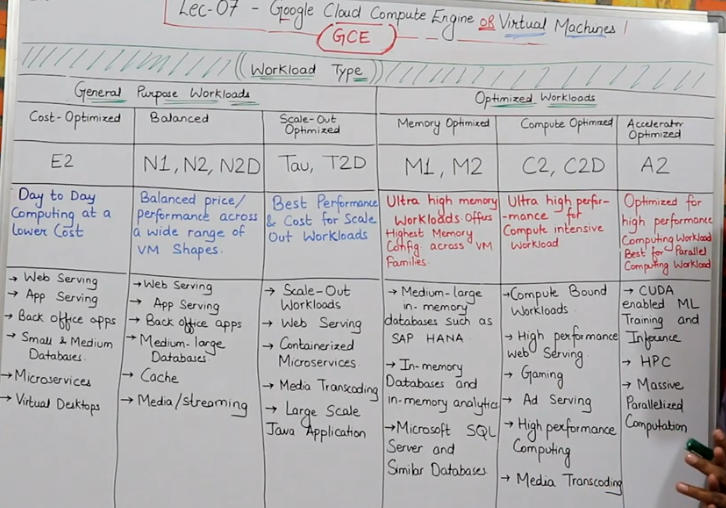 Lec-07 - Google Cloud Compute Engine OR Virtual Machines
GCE
Workload Type
General Purpose Workloads
Optimized Workloads
Cost-Optimized
Balanced
Scale-Out
Optimized
Memory Optimized
Compute Optimized
Accelerator
Optimized
E2
N1, N2, N2D
Tau, T2D
M1, M2
C2, C2D
A2
Day to Day
Computing at a
Lower Cost
Balanced price/
performance across
a wide range of
VM Shapes.
Best Performance
& Cost for Scale
Out Workloads
Ultra high memory
Workloads Offers
Highest Memory
Config. across VM
Families.
Ultra high perfor-
-mance for
Compute intensive
Workload
Optimized for
high performance
Computing Workload
Best for Parallel
Computing Workload
→ Web Serving
→ App Serving
→ Back office apps
→ Small & Medium
Databases.
→ Microservices
→ Virtual Desktops
→ Web Serving
→ App Serving
→ Back office apps
→ Medium-large
Databases
→ Cache
→ Media/streaming
→ Scale-Out
Workloads
→ Web Serving
→ Containerized
Microservices
→ Media Transcoding
→ Large Scale
Java Application
→ Medium-large
in-memory
databases such as
SAP HANA
→ In-memory
Databases and
in-memory analytics
→ Microsoft SQL
Server and
Similar Databases
→ Compute Bound
Workloads.
→ High performance
Web Serving.
→ Gaming
→ Ad Serving
→ High performance
Computing
→ Media Transcoding
→ CUDA
enabled ML
Training and
Inference
→ HPC
→ Massive
Parallelized
Computation